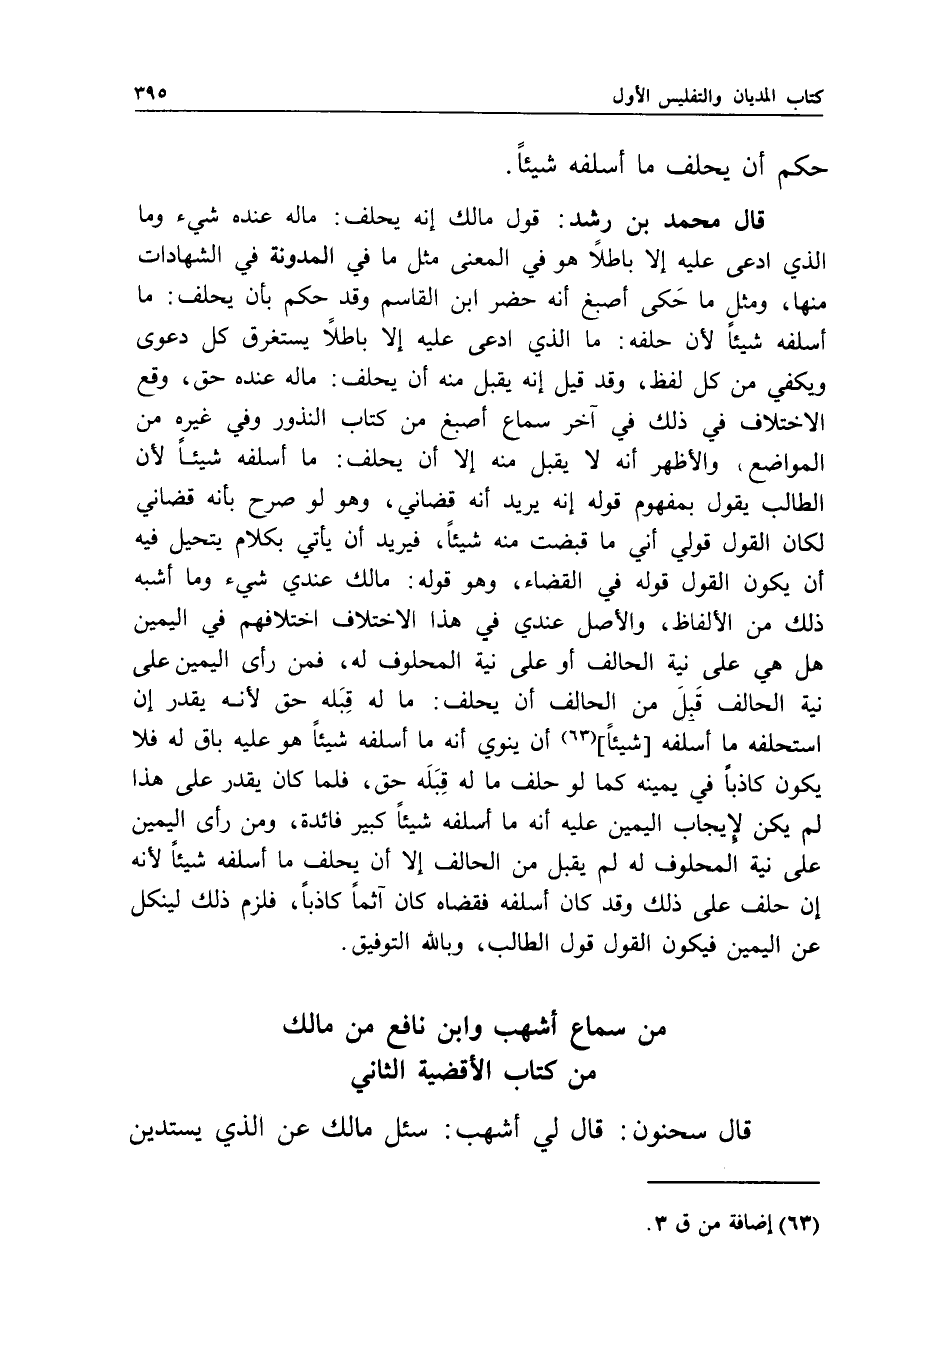 كتاب المديان والتفليس الأول ٣٩٥
حكم أن يحلف ما أسلفه شيئاً.
قال محمد بن رشد: قول مالك إنه يحلف: ماله عنده شيء وما
الذي ادعى عليه إلا باطلاً هو في المعنى مثل ما في المدونة في الشهادات
منها، ومثل ما حَكى أصبغ أنه حضر ابن القاسم وقد حكم بأن يحلف: ما
أسلفه شيئاً لأن حلفه: ما الذي ادعى عليه إلا باطلاً يستغرق كل دعوى
ويكفي من كل لفظ، وقد قيل إنه يقبل منه أن يحلف: ماله عنده حق، وقع
الاختلاف في ذلك في آخر سماع أصبغ من كتاب النذور وفي غيره من
المواضع، والأظهر أنه لا يقبل منه إلا أن يحلف: ما أسلفه شيئاً لأن
الطالب يقول بمفهوم قوله إنه يريد أنه قضاني، وهو لو صرح بأنه قضاني
لكان القول قولي أني ما قبضت منه شيئاً، فيريد أن يأتي بكلام يتحيل فيه
أن يكون القول قوله في القضاء، وهو قوله: مالك عندي شيء وما أشبه
ذلك من الألفاظ، والأصل عندي في هذا الاختلاف اختلافهم في اليمين
هل هي على نية الحالف أو على نية المحلوف له، فمن رأى اليمين على
نية الحالف قَبِلَ من الحالف أن يحلف: ما له قِبَله حق لأنه يقدر إن
استحلفه ما أسلفه [شيئاً](٦٣) أن ينوي أنه ما أسلفه شيئاً هو عليه باق له فلا
يكون كاذباً في يمينه كما لو حلف ما له قِبَلَه حق، فلما كان يقدر على هذا
لم يكن لإِيجاب اليمين عليه أنه ما أسلفه شيئاً كبير فائدة، ومن رأى اليمين
على نية المحلوف له لم يقبل من الحالف إلا أن يحلف ما أسلفه شيئاً لأنه
إن حلف على ذلك وقد كان أسلفه فقضاه كان آثماً كاذباً، فلزم ذلك لينكل
عن اليمين فيكون القول قول الطالب، وبالله التوفيق.
من سماع أشهب وابن نافع من مالك
من كتاب الأقضية الثاني
قال سحنون: قال لي أشهب: سئل مالك عن الذي يستدين
(٦٣) إضافة من ق ٣.